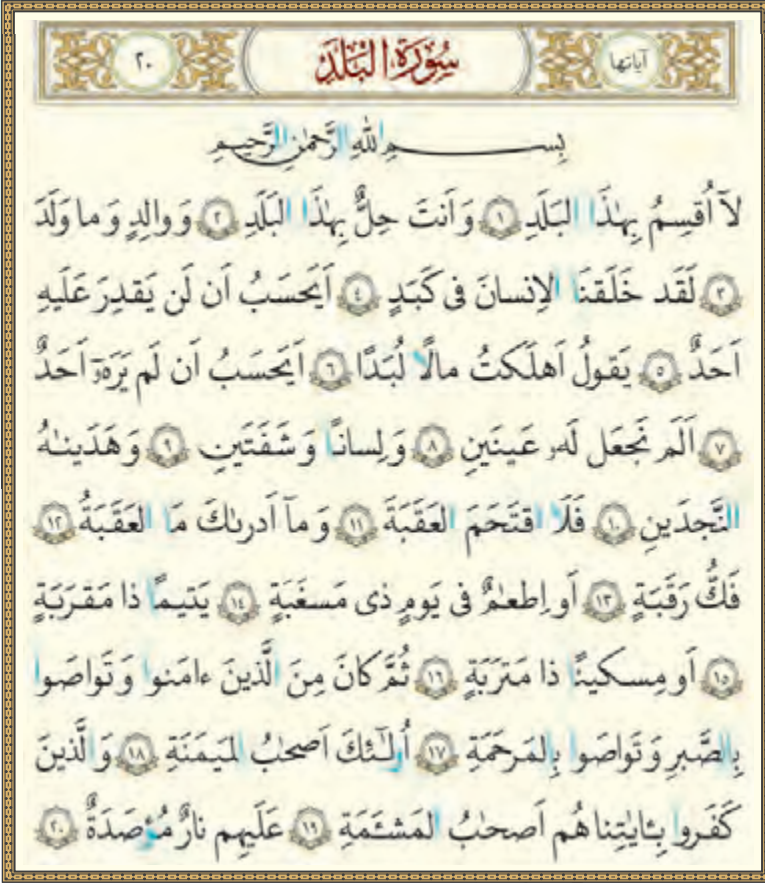 آیاتها سُورَةُ البَلَدِ ٢٠
بِسمِ اللّٰهِ الرَّحمٰنِ الرَّحیمِ
لآ اُقسِمُ بِهٰذَا البَلَدِ ﴿١﴾ وَ اَنتَ حِلٌّ بِهٰذَا البَلَدِ ﴿٢﴾ وَ والِدٍ وَ ما وَلَدَ
﴿٣﴾ لَقَد خَلَقنَا الاِنسانَ فی کَبَدٍ ﴿٤﴾ اَیَحسَبُ اَن لَن یَقدِرَ عَلَیهِ
اَحَدٌ ﴿٥﴾ یَقولُ اَهلَکتُ مالًا لُبَدًا ﴿٦﴾ اَیَحسَبُ اَن لَم یَرَهۥٓ اَحَدٌ
﴿٧﴾ اَلَم نَجعَل لَهۥ عَینَینِ ﴿٨﴾ وَ لِسانًا وَ شَفَتَینِ ﴿٩﴾ وَ هَدَینٰهُ
النَّجدَینِ ﴿١٠﴾ فَلَا اقتَحَمَ العَقَبَةَ ﴿١١﴾ وَ مآ اَدرىٰكَ مَا العَقَبَةُ ﴿١٢﴾
فَكُّ رَقَبَةٍ ﴿١٣﴾ اَو اِطعٰمٌ فی یَومٍ ذی مَسغَبَةٍ ﴿١٤﴾ یَتیمًا ذا مَقرَبَةٍ
﴿١٥﴾ اَو مِسکینًا ذا مَترَبَةٍ ﴿١٦﴾ ثُمَّ کانَ مِنَ الَّذینَ ءامَنوا وَ تَواصَوا
بِالصَّبرِ وَ تَواصَوا بِالمَرحَمَةِ ﴿١٧﴾ اُولٰٓئِكَ اَصحٰبُ المَیمَنَةِ ﴿١٨﴾ وَ الَّذینَ
کَفَروا بِـٔایٰتِنا هُم اَصحٰبُ المَشـَٔمَةِ ﴿١٩﴾ عَلَیهِم نارٌ مُؤصَدَةٌ ﴿٢٠﴾